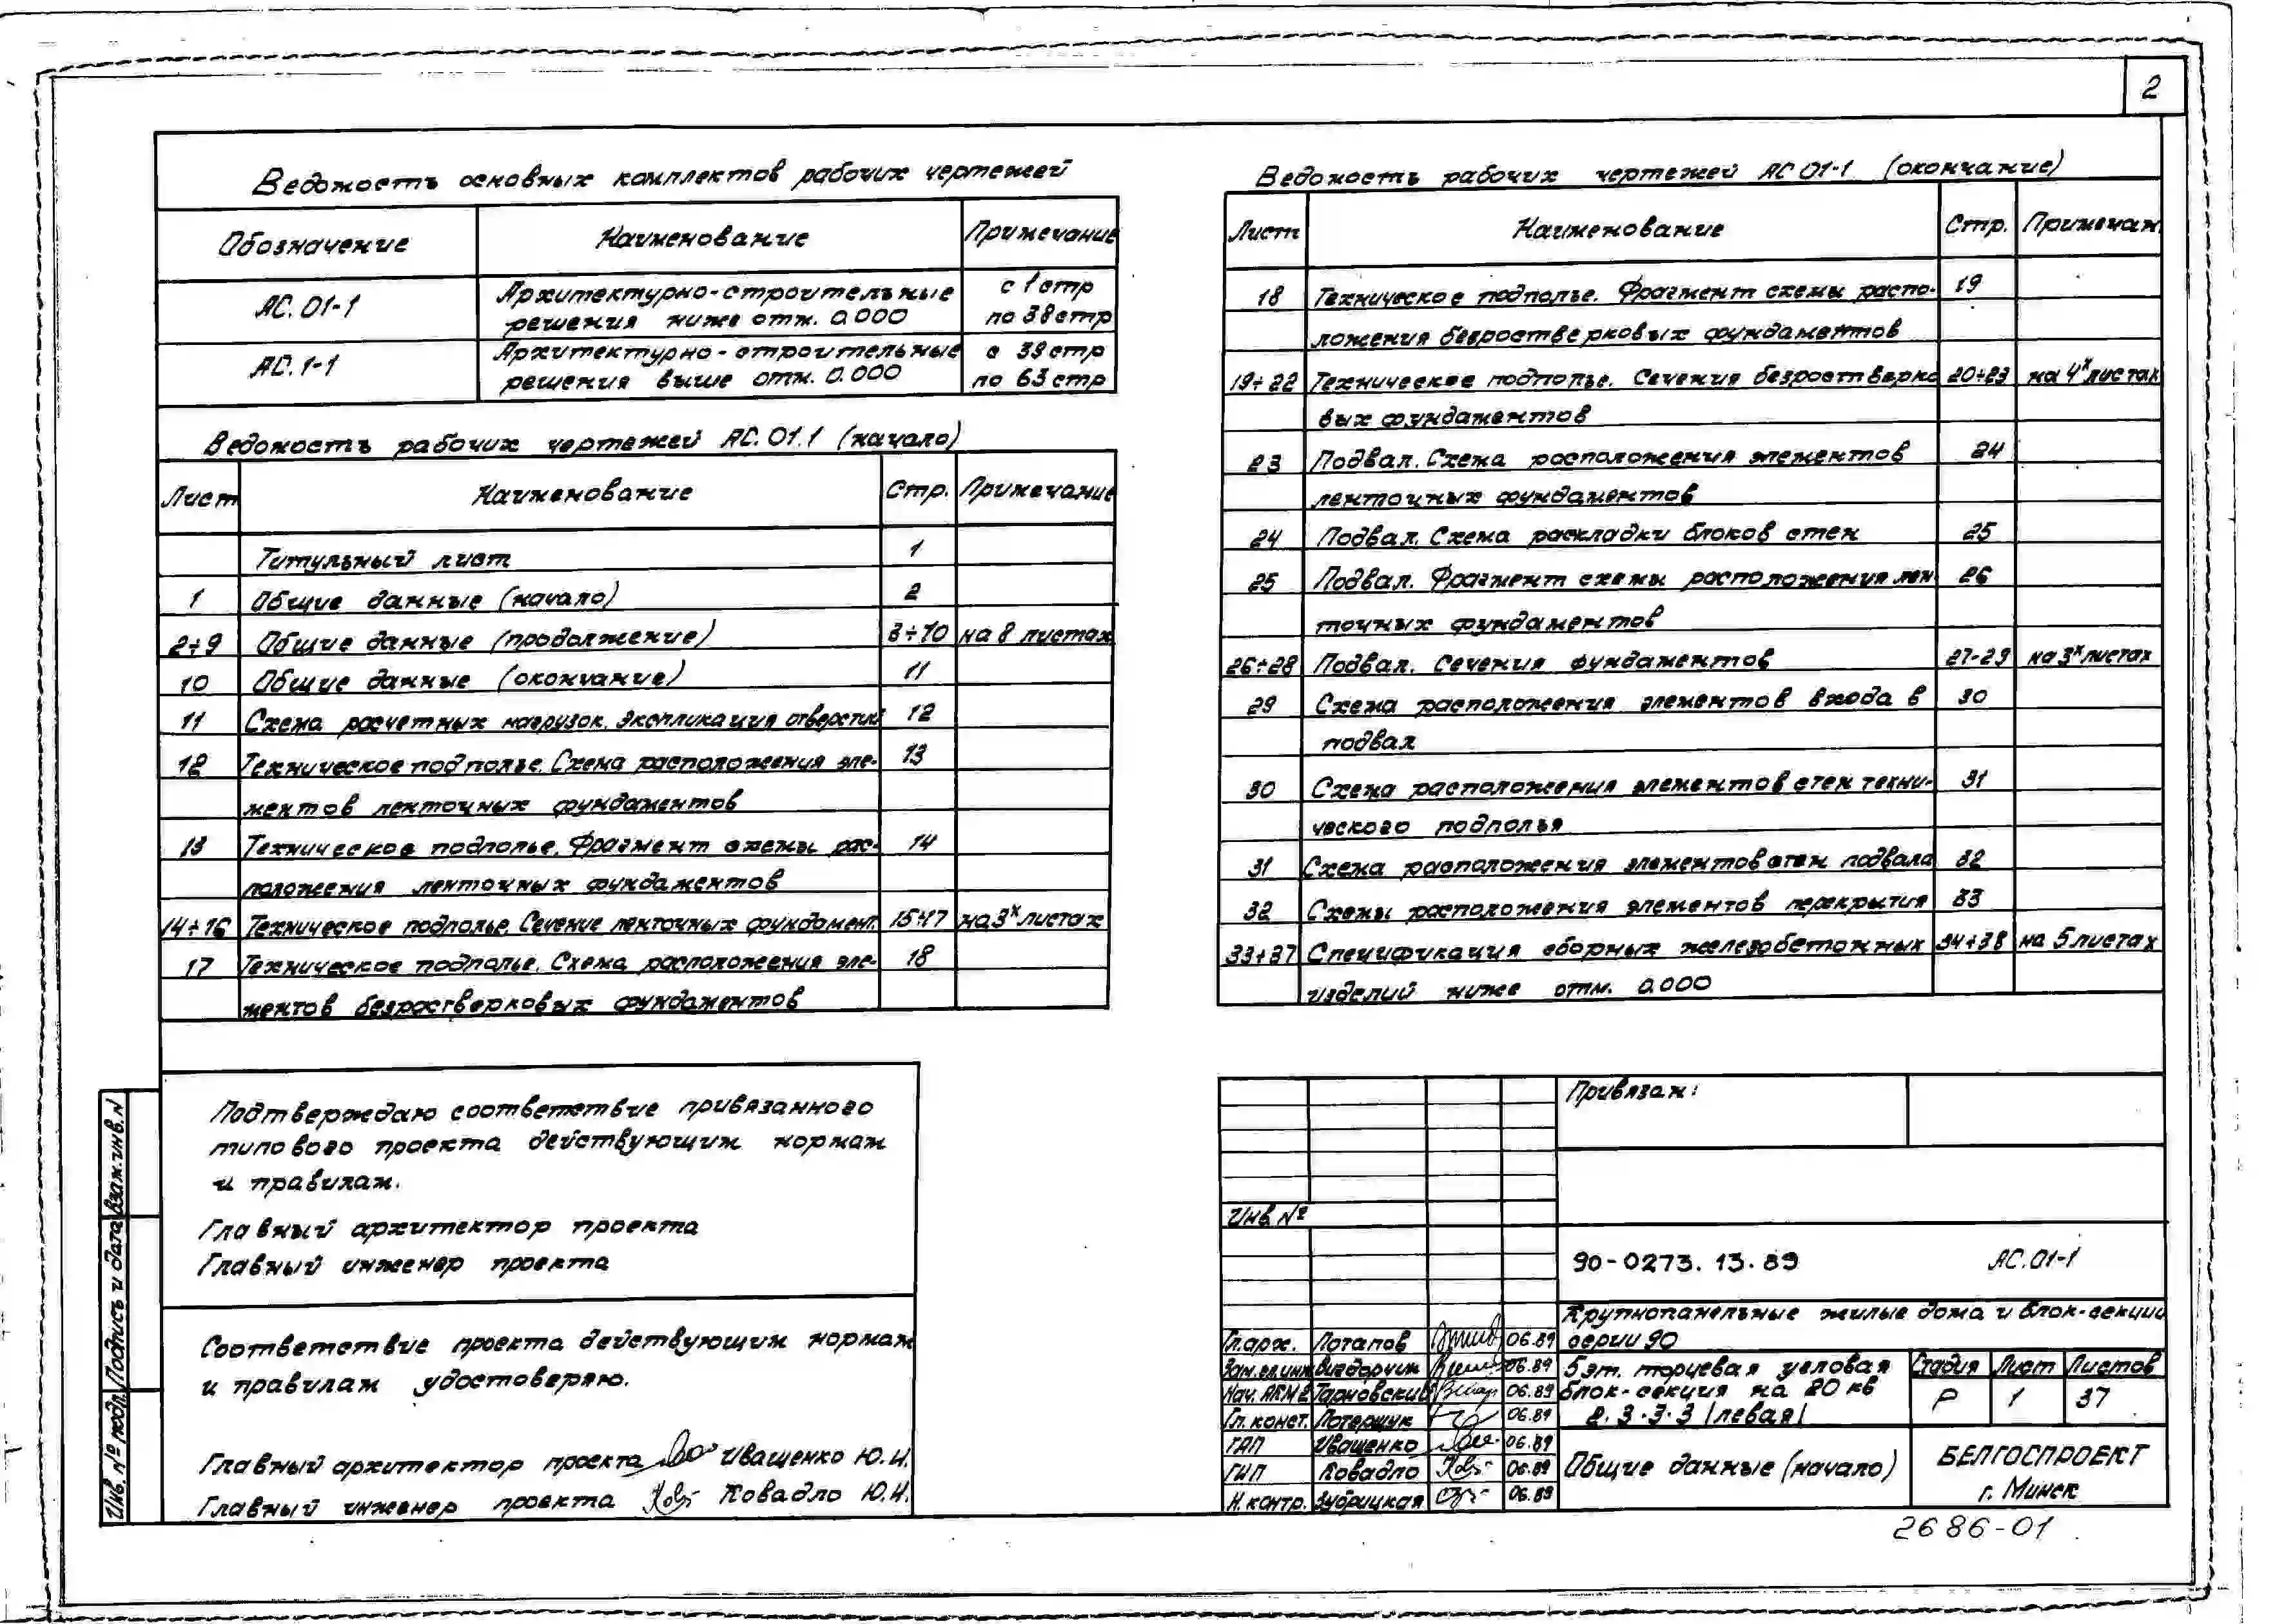 2
Ведомость основных комплектов рабочих чертежей
Обозначение Наименование Примечание
АС.01-1 Архитектурно-строительные с 1 стр
решения ниже отм. 0.000 по 38 стр
АС.1-1 Архитектурно-строительные с 39 стр
решения выше отм. 0.000 по 63 стр
Ведомость рабочих чертежей АС.01.1 (начало)
Лист Наименование Стр. Примечание
Титульный лист 1
1 Общие данные (начало) 2
2÷9 Общие данные (продолжение) 3÷10 на 8 листах
10 Общие данные (окончание) 11
11 Схема расчетных нагрузок. Экспликация отверстий 12
12 Техническое подполье. Схема расположения эле- 13
ментов ленточных фундаментов
13 Техническое подполье. Фрагмент схемы рас- 14
положения ленточных фундаментов
14÷16 Техническое подполье. Сечение ленточных фундамент. 15÷17 на 3х листах
17 Техническое подполье. Схема расположения эле- 18
ментов безростверковых фундаментов
Ведомость рабочих чертежей АС 01-1 (окончание)
Лист Наименование Стр. Примечан.
18 Техническое подполье. Фрагмент схемы распо- 19
ложения безростверковых фундаментов
19÷22 Техническое подполье. Сечения безростверко 20÷23 на 4х листах
вых фундаментов
23 Подвал. Схема расположения элементов 24
ленточных фундаментов
24 Подвал. Схема раскладки блоков стен 25
25 Подвал. Фрагмент схемы расположения лен 26
точных фундаментов
26÷28 Подвал. Сечения фундаментов 27-29 на 3х листах
29 Схема расположения элементов входа в 30
подвал
30 Схема расположения элементов стен техни- 31
ческого подполья
31 Схема расположения элементов стен подвала 32
32 Схемы расположения элементов перекрытия 33
33÷37 Спецификация сборных железобетонных 34÷38 на 5 листах
изделий ниже отм. 0.000
Подтверждаю соответствие привязанного
типового проекта действующим нормам
и правилам.
Главный архитектор проекта
Главный инженер проекта
Соответствие проекта действующим нормам
и правилам удостоверяю.
Главный архитектор проекта Иващенко Ю.И.
Главный инженер проекта Ковадло Ю.И.
Инв. № подл. Подпись и дата Взам.инв.N
Привязан:
Инв.№
90-0273.13.89 АС.01-1
Крупнопанельные жилые дома и блок-секции
серии 90
Гл.арх. Потапов 06.89
Зам.гл.инж 06.89
Нач. АКМ 2 Тарновский 06.89
Гл. конст. Потерщук 06.89
ГАП Иващенко 06.89
ГИП Ковадло 06.89
Н.контр. Зубрицкая 06.89
5 эт. торцевая угловая
блок-секция на 20 кв
2.3.3.3 (левая)
Стадия Лист Листов
Р 1 37
Общие данные (начало)
БЕЛГОСПРОЕКТ
г. Минск
2686-01